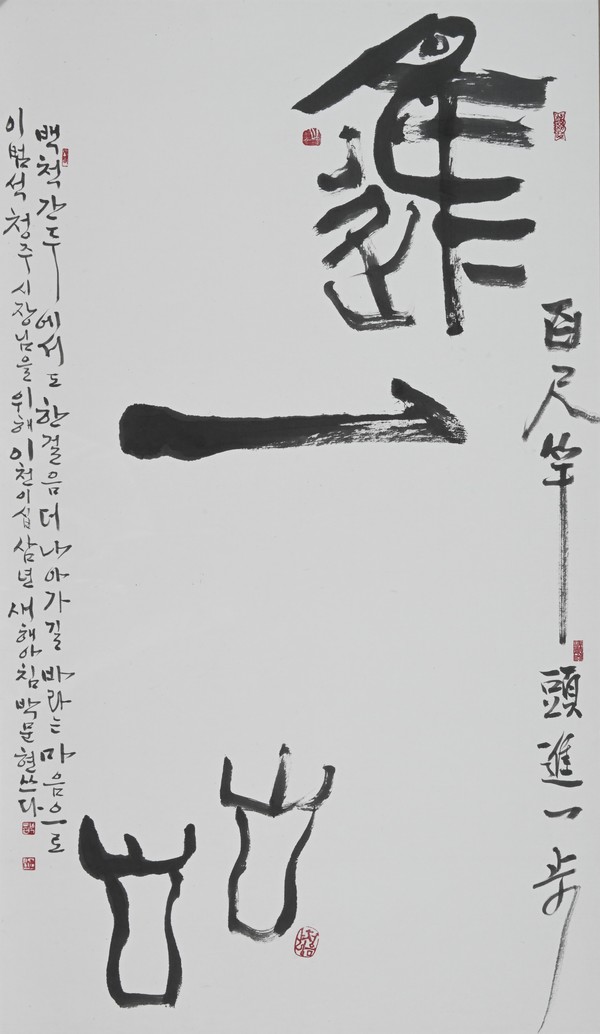 百尺竿頭進一步
進一步
백척간두에서도 한걸음 더 나아가길 바라는 마음으로
이범석 청주시장님을 위해 이천이십삼년 새해아침 박문현쓰다